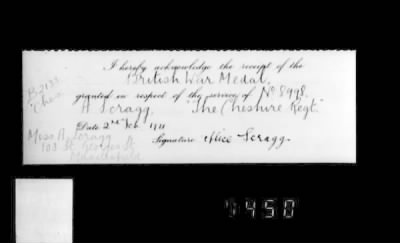 I hereby acknowledge the receipt of the
British War Medal.
granted in respect of the services of No 8998.
H Scragg. "The Cheshire Regt."
Date 2nd Feb 1921
Signature Alice Scragg.
B.2133
Ches
Miss A. Scragg
103 St Georges St
Macclesfield
9450